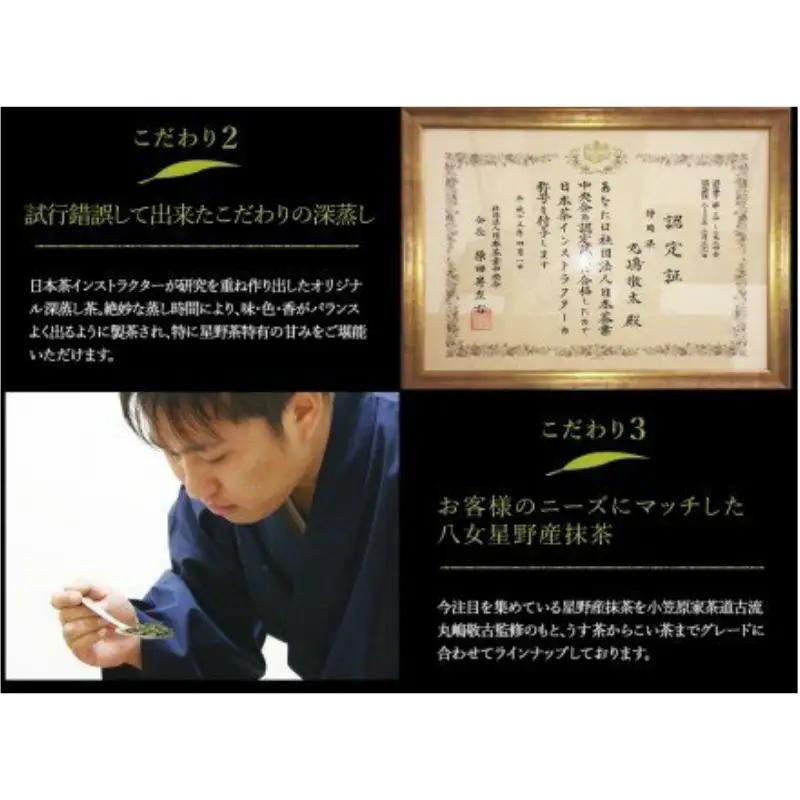 こだわり2
試行錯誤して出来たこだわりの深蒸し
日本茶インストラクターが研究を重ね作り出したオリジナ
ル深蒸し茶。絶妙な蒸し時間により、味・色・香がバランス
よく出るように製茶され、特に星野茶特有の甘みをご堪能
いただけます。
認定証
静岡県
丸嶋徹太 殿
あなたは社団法人日本茶業
中央会の認定試験に合格したので
日本茶インストラクターの
称号を付与します
社団法人日本茶業中央会
こだわり3
お客様のニーズにマッチした
八女星野産抹茶
今注目を集めている星野産抹茶を小笠原家茶道古流
丸嶋敬古監修のもと、うす茶からこい茶までグレードに
合わせてラインナップしております。